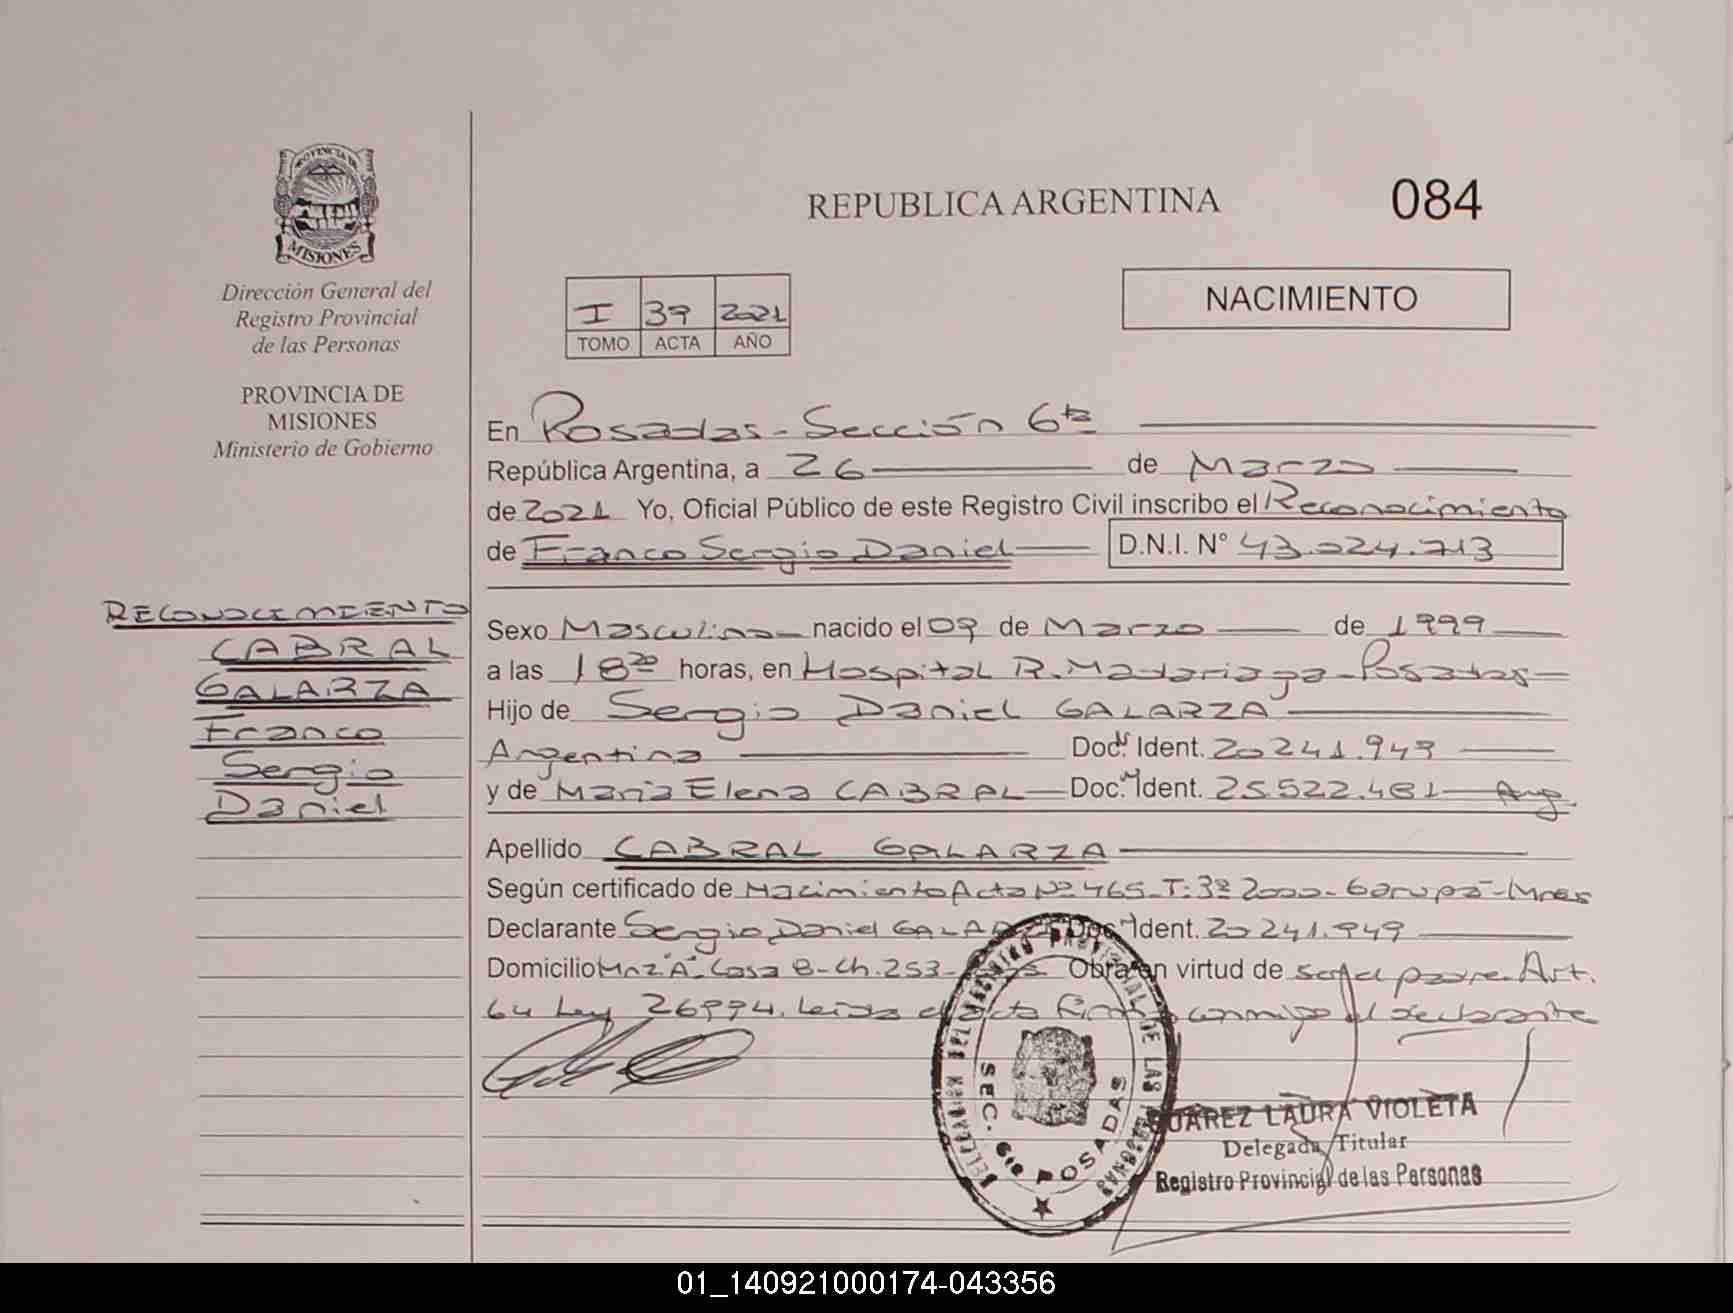 PROVINCIA DE
MISIONES
Dirección General del
Registro Provincial
de las Personas
PROVINCIA DE
MISIONES
Ministerio de Gobierno
RECONOCIMIENTO
CABRAL
GALARZA
Franco
Sergio
Daniel
REPUBLICA ARGENTINA
084
I 39 2021
TOMO ACTA AÑO
NACIMIENTO
En Posadas - Sección 6ta
República Argentina, a 26 de Marzo
de 2021 Yo, Oficial Público de este Registro Civil inscribo el Reconocimiento
de Franco Sergio Daniel D.N.I. N° 43.024.713
Sexo Masculino nacido el 09 de Marzo de 1999
a las 18 20 horas, en Hospital R. Madariaga - Posadas
Hijo de Sergio Daniel GALARZA
Argentina Doc. Ident. 20 241.949
y de Maria Elena CABRAL Doc. M Ident. 25.522.481 Arg.
Apellido CABRAL GALARZA
Según certificado de Nacimiento Acta Nº 465 - T: 3º 2000 - Garupá - Mnes
Declarante Sergio Daniel GALARZA Doc. Ident. 20 241.949
Domicilio Mnz "A" Casa 8 - Ch. 253 - Obra en virtud de ser el padre. Art.
64 Ley 26994. Leída el acta firma conmigo el declarante
DELEGACION DEL REGISTRO PROVINCIAL DE LAS PERSONAS
SEC. 6ta POSADAS
SUAREZ LAURA VIOLETA
Delegada Titular
Registro Provincial de las Personas
01_140921000174-043356